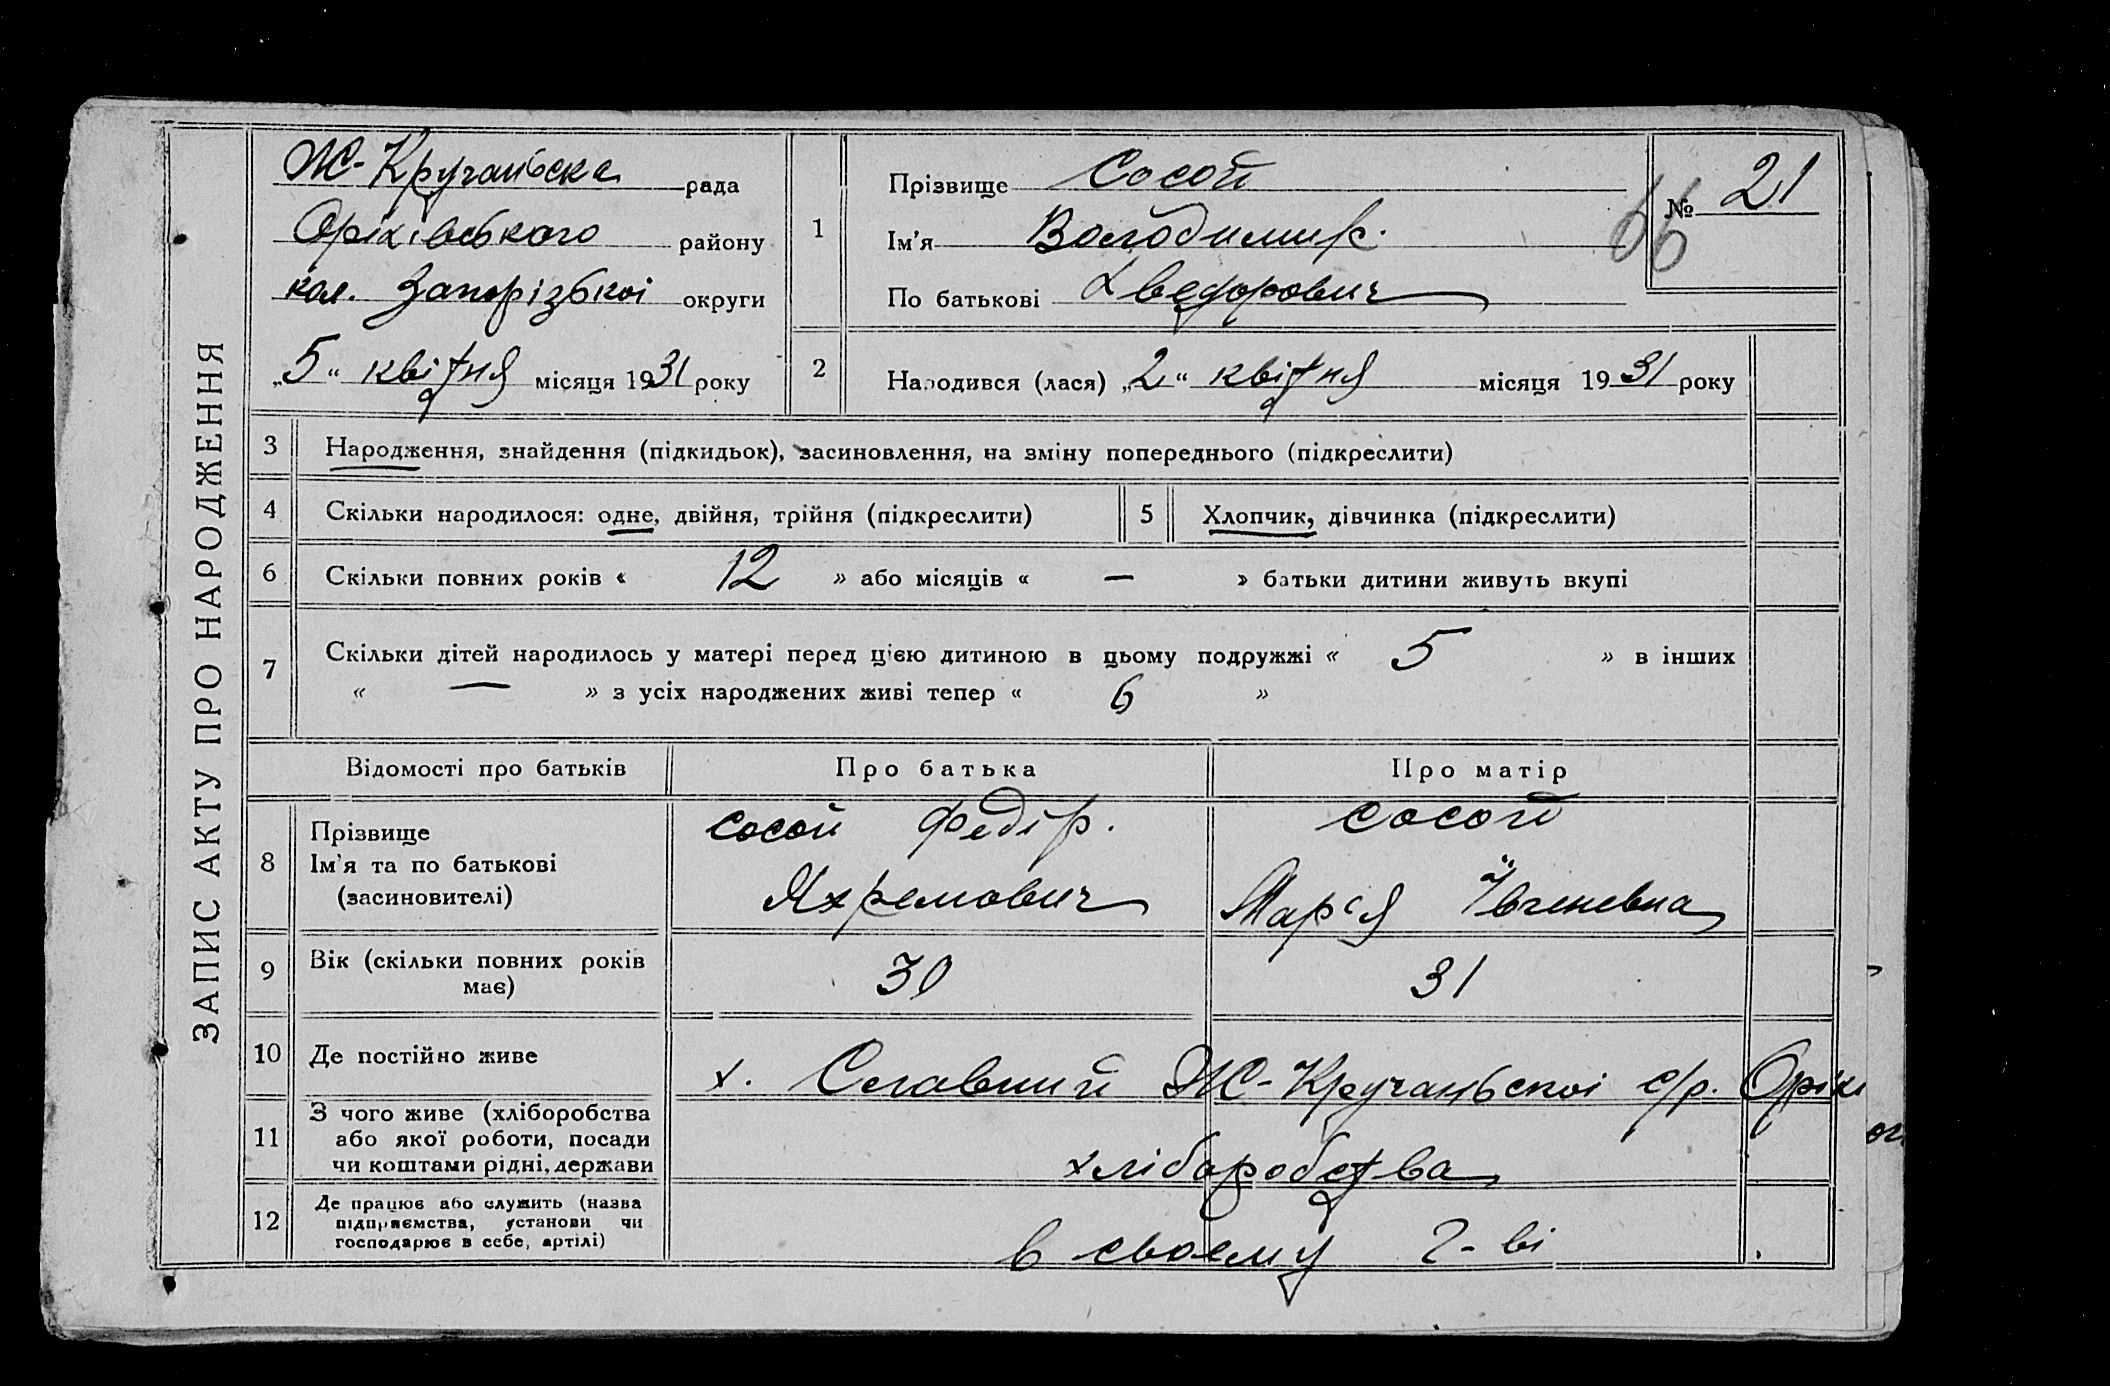 ЗАПИС АКТУ ПРО НАРОДЖЕННЯ
Ж-Кручанська рада
Оріхівського району
кол. Запорізької округи
„5“ квітня місяця 1931 року
1
Прізвище Сосой
Ім'я Володимир.
По батькові Хведорович
№ 21
66
2
Народився (лася) „2“ квітня місяця 1931 року
3 Народження, знайдення (підкидьок), засиновлення, на зміну попереднього (підкреслити)
4 Скільки народилося: одне, двійня, трійня (підкреслити)
5 Хлопчик, дівчинка (підкреслити)
6 Скільки повних років « 12 » або місяців « — » батьки дитини живуть вкупі
7 Скільки дітей народилось у матері перед цією дитиною в цьому подружжі « 5 » в інших
« — » з усіх народжених живі тепер « 6 »
Відомості про батьків
Про батька
Про матір
8 Прізвище
Ім'я та по батькові
(засиновителі)
Сосой Федір.
Яхремович
Сосой
Мар'я Івгеневна
9 Вік (скільки повних років
має)
30
31
10 Де постійно живе
х. Славний Ж-Кручанської с/р. Оріх
11 З чого живе (хліборобства
або якої роботи, посади
чи коштами рідні, держави
хліборобства
12 Де працює або служить (назва
підприємства, установи чи
господарює в себе, артілі)
в своєму г-ві